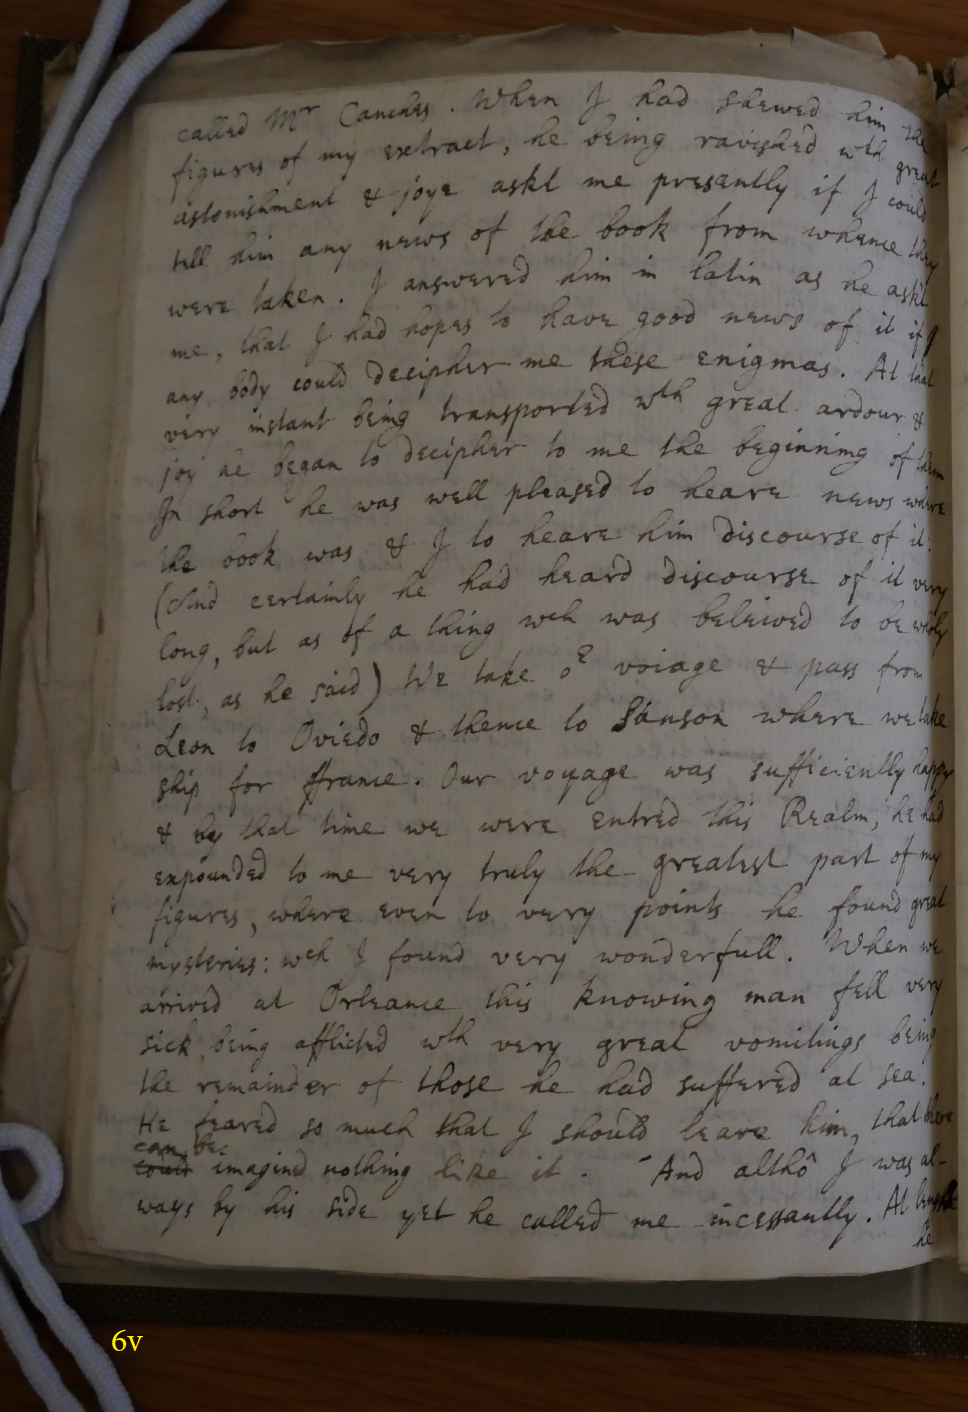 called Mr Canches. When I had shewed him the
figures of my extract, he being ravished wth great
astonishment & joye askt me presantly if I could
tell him any news of the book from whence they
were taken. I answered him in latin as he askt
me, that I had hopes to have good news of it if
any body could decipher me these enigmas. At that
very instant being transported wth great ardour &
joy he began to decipher to me the beginning of them
In short he was well pleased to heare news where
the book was & I to heare him discourse of it.
(And certainly he had heard discourse of it very
long, but as of a thing wch was beleived to be wholy
lost, as he said) We take or voiage & pass from
Leon to Oviedo & thence to Sanson where we take
ship for ffrance. Our voyage was sufficiently happy
& by that time we were entred this Realm, he had
expounded to me very truly the greatest part of my
figures, where even to very points he found great
mysteries: wch I found very wonderfull. When we
arrived at Orleance this knowing man fell very
sick, being afflicted wth very great vomitings being
the remainder of those he had suffered at sea.
He feared so much that I should leave him, that there
can be
could imagind nothing like it. And althô I was al-
ways by his side yet he called me incessantly. At length
he
6v